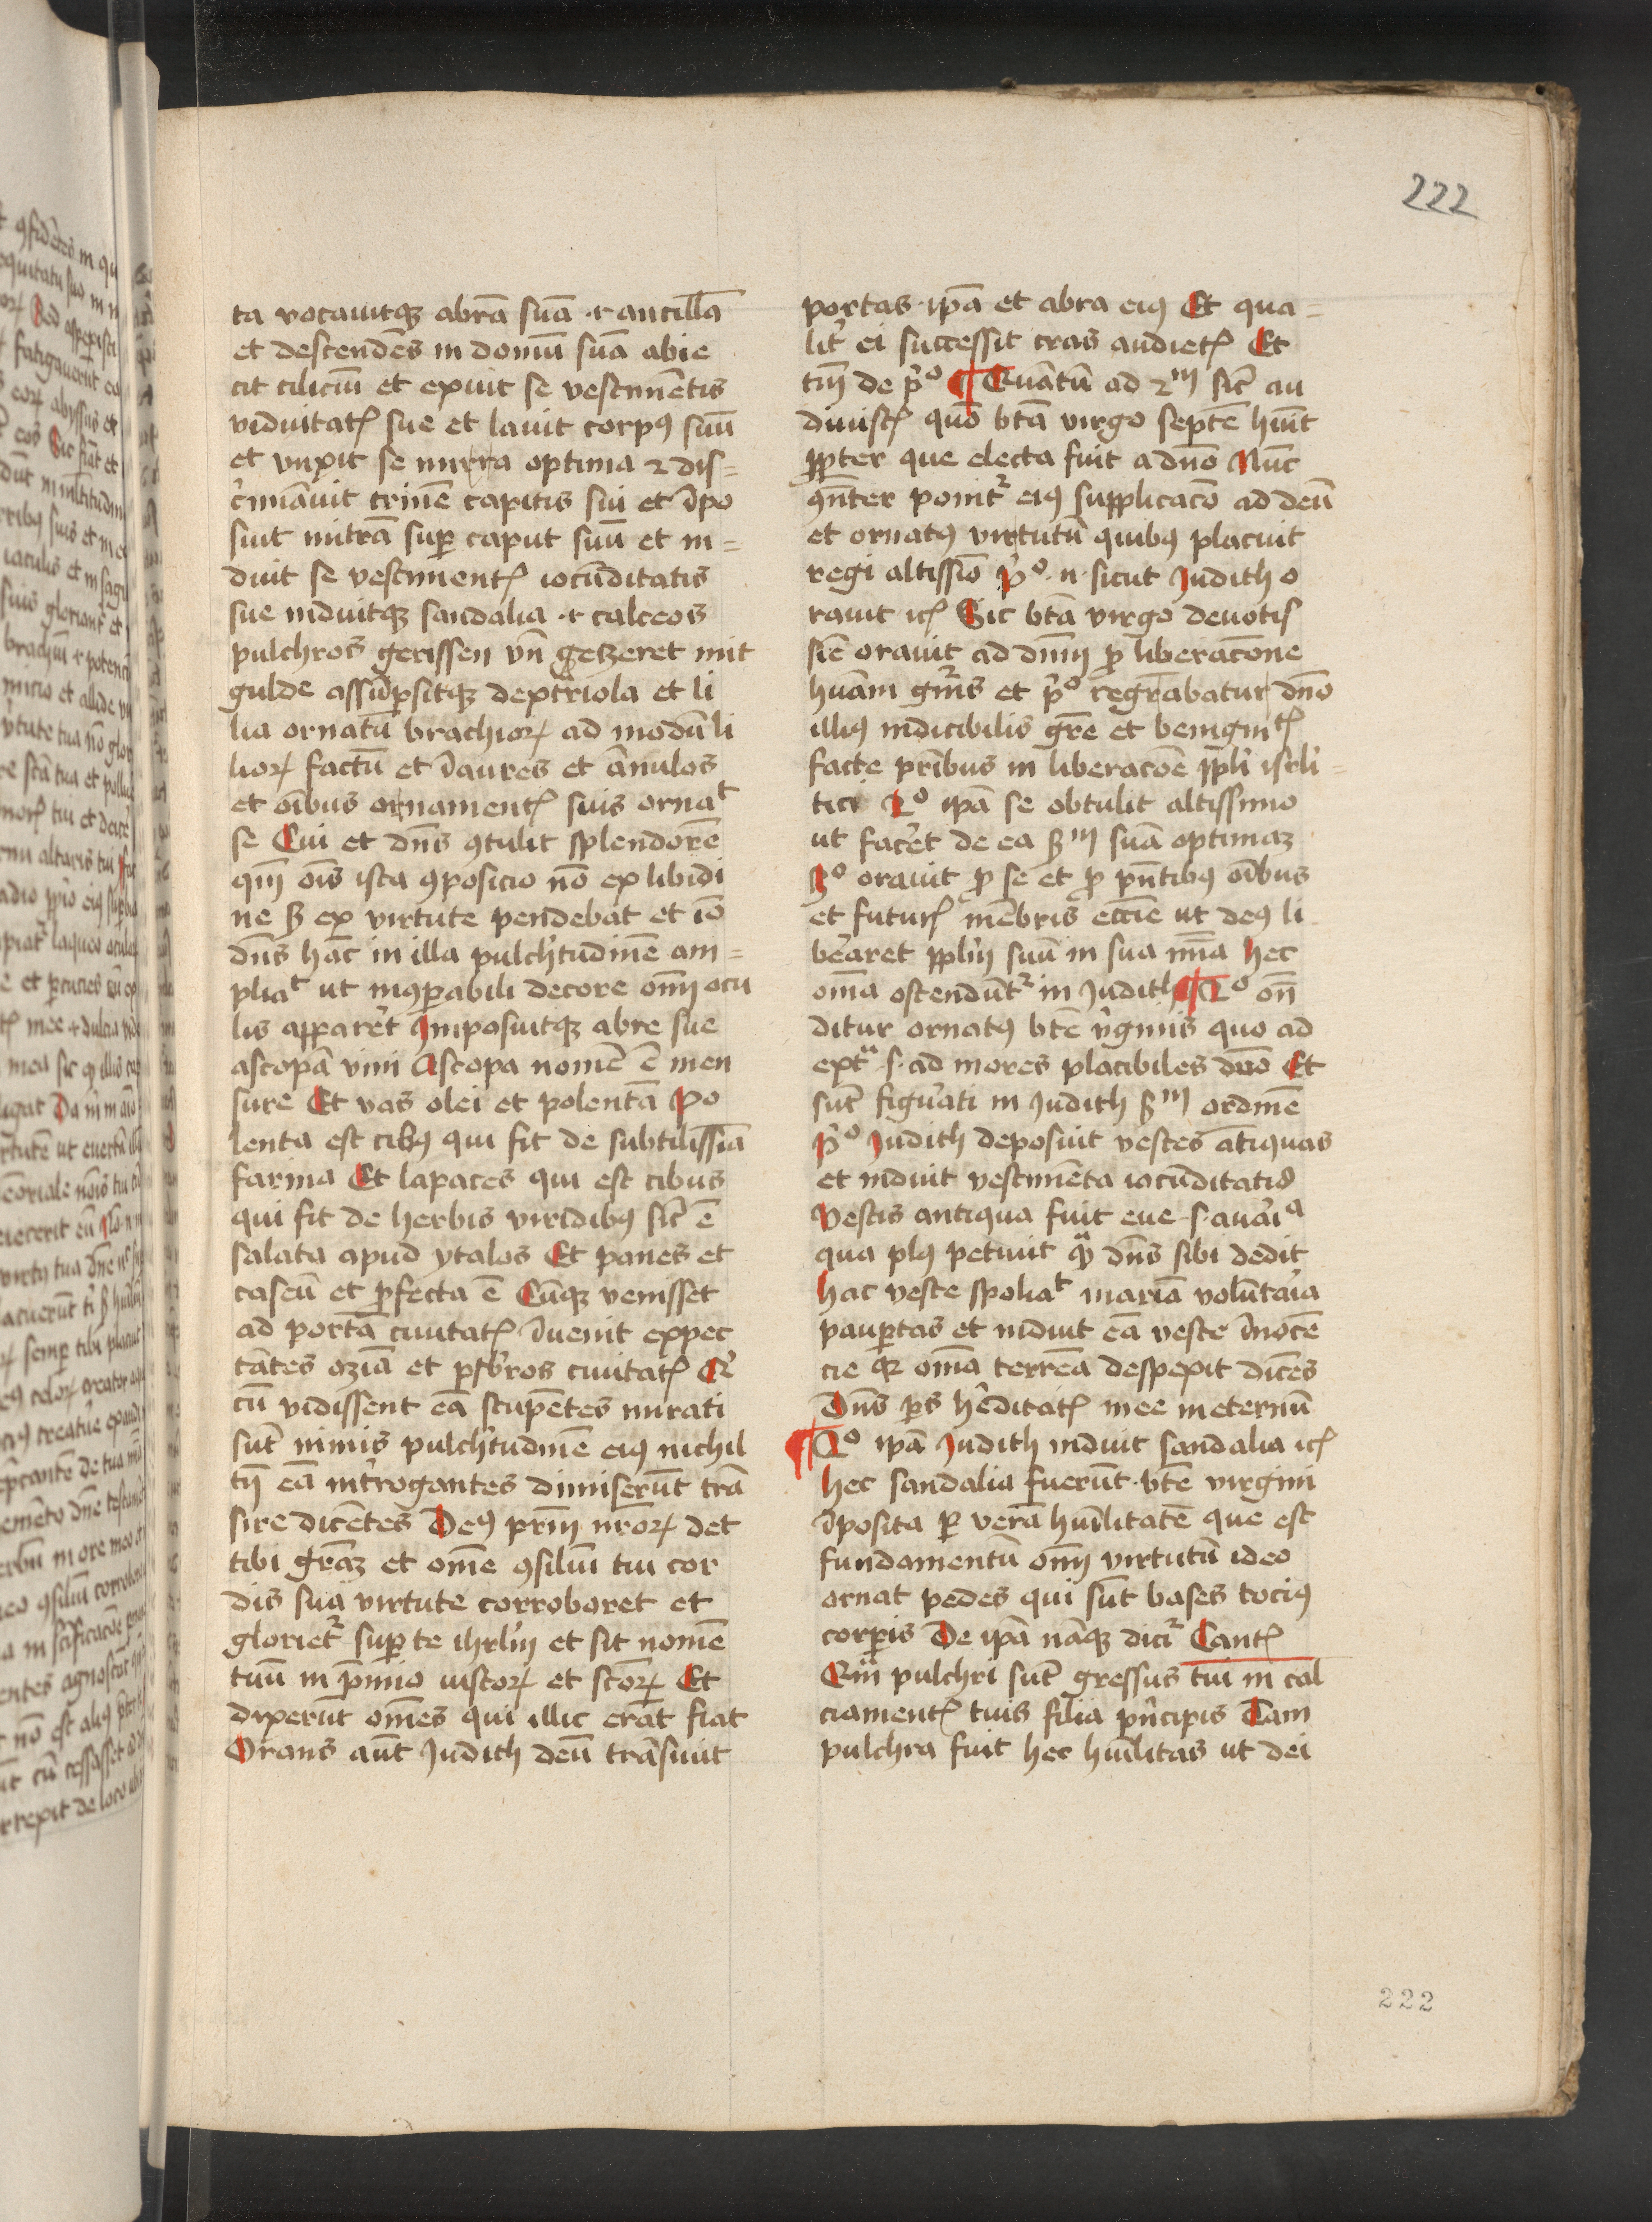 222
ta vocauitqꝫ abrā suā .i. ancillā
et descendēs in domū suā abie
cit ciliciū et exuit se vestimētis
viduitatꝭ sue et lauit corpꝰ suū
et vnxit se mirra optima ⁊ dis=
c̓minauit crinē capitis sui et īpo
suit mitrā suꝑ caput suū et in=
duit se vestimentꝭ iocūditatis
sue induitqꝫ sandalia .i. calceos
pulchros gerissen vn̄ geczeret mit
gulde assūpsitqꝫ dextᵃriola et li
lia ornatū brachioꝝ ad modū li
lioꝝ factū et īaures et ānulos
et oībus ornamentꝭ suis ornaᵗ
se Cui et dn̄s ꝯtulit splendorē
qm̄ oīs ista ꝯposicio nō ex libidi
ne sꝫ ex virtute pendebat et iō
dn̄s hāc in illa pulch̓tudinē am=
pliaᵗ ut inꝯꝑabili decore om̄ ocu
lis apparet̓ Imposuitqꝫ abre sue
ascopā vini Ascopa nomē ē men
sure Et vas olei et polentā Po
lenta est cibꝰ qui fit de subtilissīa
farina Et lapates qui est cibus
qui fit de herbis viridibꝰ sic̄ ē
salata apud ytalos Et panes et
caseū et ꝑfecta ē Cūqꝫ venisset
ad portā ciuitatꝭ īuenit expec
tātes oziā et p̄sbr̓os ciuitatꝭ Q̓
cū vidissent eā stupētes mirati
sūt nimis pulch̓tudinē eiꝰ nichil
tn̄ eā int̓rogantes dimiserūt trā
sire dicētes Deꝰ prm̄ nr̄oꝝ det
tibi grāꝫ et om̄e ꝯsiliū tui cor
dis sua virtute corroboret et
glorietᷣ suꝑ te ihrl̓m et sit nomē
tuū in p̄mio iustoꝝ et sc̄oꝝ Et
dixerūt om̄es qui illic erāt fiat
Orans aūt Judith deū trāsiuit
portas ipā et abra eiꝰ Et qua=
lit̓ ei successit cras audietꝭ Et
tm̄ de p̓º ¶ Quātū ad 2ᵐ sic̄ au
diuistꝭ quō btā virgo septē hūit
ꝓpter que electa fuit a dn̄o Nūc
ꝯn̄ter ponitᷣ eiꝰ supplicacō ad deū
et ornatꝰ virtutū quibus placuit
regi altissīo P̓º .n. sicut Judith o
rauit icꝭ Sic btā virgo deuotis
sīe orauit ad dn̄m ꝓ liberacōne
hūani gn̓is et p̓º regrābatur dn̄o
illiꝰ indicibilis grē et benignitꝭ
facte prībus in liberacōe ppl̓i isrl̓i=
tici 2º ipā se obtulit altissimo
ut facet̓ de ea sꝫᵐ suā optimaꝫ
3º orauit ꝓ se et ꝓ pn̄tibꝰ oībus
et futurꝭ mēbris eccīe ut deꝰ li
beraret ppl̓m suū in sua mīa hec
om̄a ostendūtᷣ in Judith ¶ 2º on̄
ditur ornatꝰ btē v̓ginis quo ad
extᵃ .s. ad mores placibiles dn̄o Et
sūt figurati in Judith sꝫᵐ ordinē
P̓º Judith deposuit vestes ātiquas
et induit vestimēta iocūditatis
Vestis antiqua fuit eue .s. auar̓iᵃ
qua plꝰ petiuit qᵃ dn̄s sibi dedit
hac veste spoliaᵗ mariā volūtar̓ia
pauꝑtas et induit eā veste īnocē
cie qꝛ om̄a terrēa despexit dicēs
Dn̄s ps hēditatꝭ mee in eternū
¶ 2º ipā Judith induit sandalia icꝭ
hec sandalia fuerūt btē virgini
īposita ꝑ verā hūilitatē que est
fundamentū om̄ virtutū ideo
ornat pedes qui sūt bases tociꝰ
corꝑis De ipā nāqꝫ dicitᷣ Cantꝭ
Qᵃm pulchri sūt gressus tui in cal
ciamentꝭ tuis filia pn̓cipis Tam
pulchra fuit hec hūilitas ut dei
222